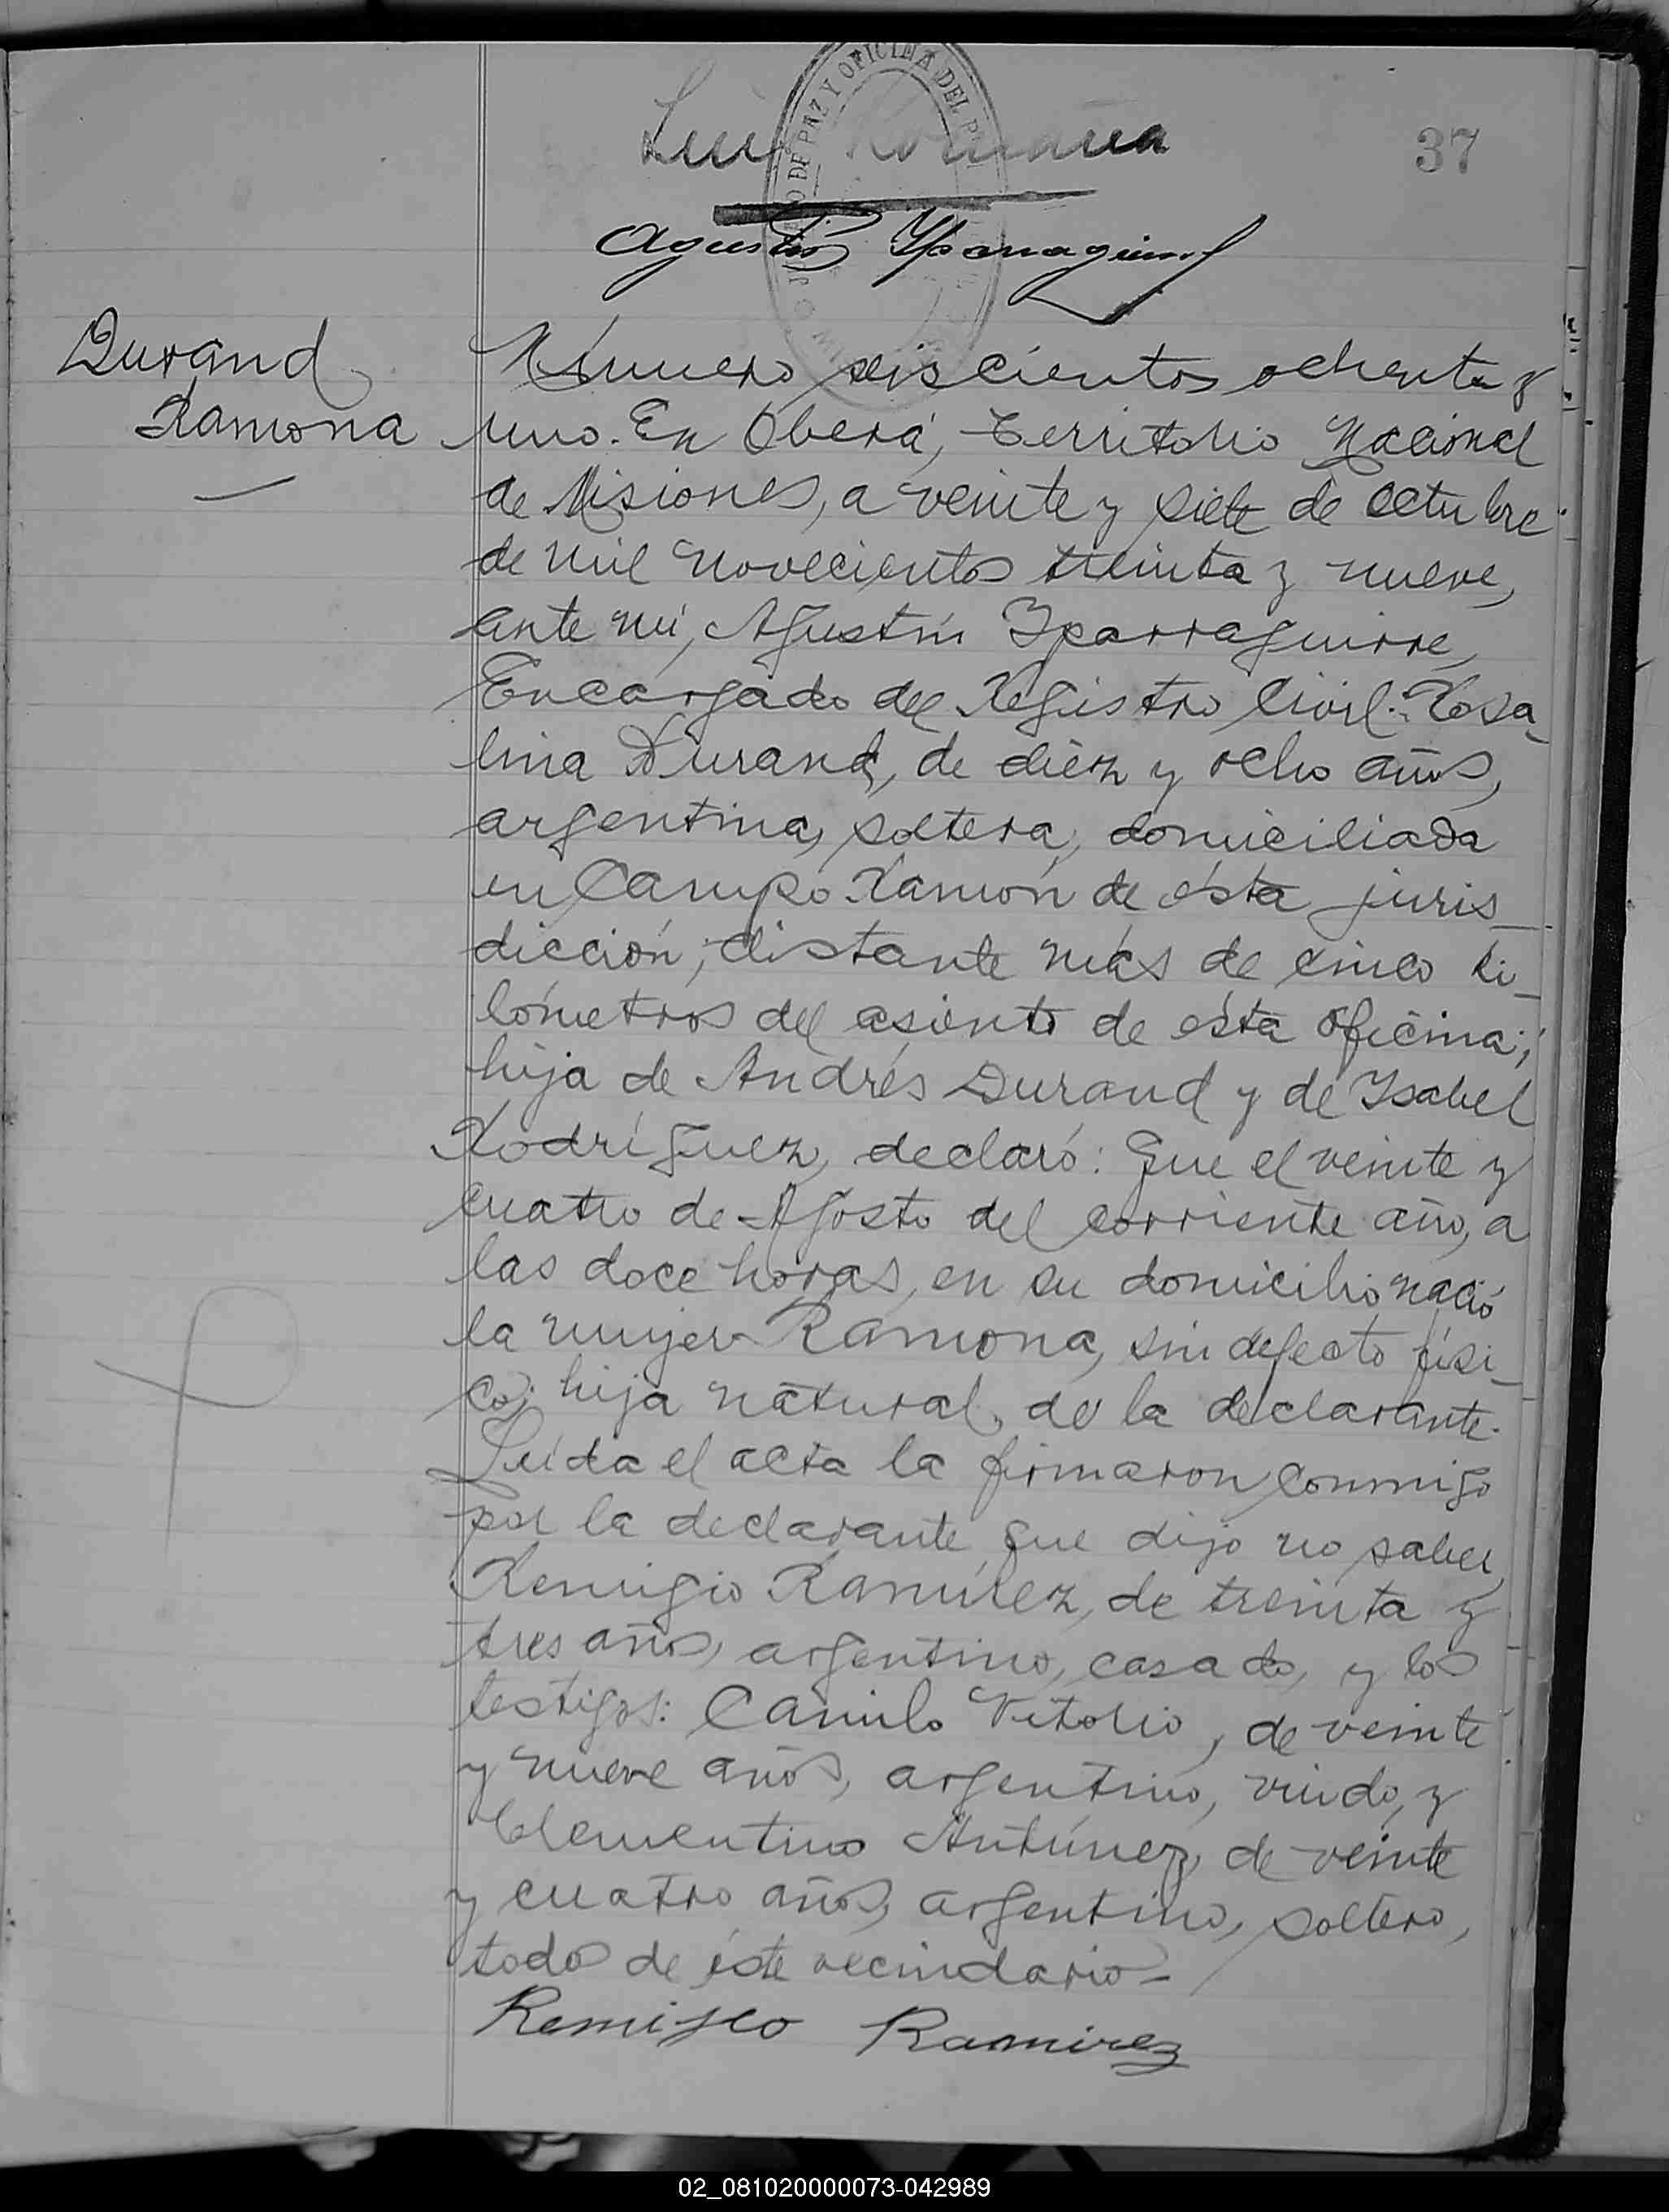 37
Luis Romaña
JUZGADO DE PAZ Y OFICINA DEL
Agustín Yparraguirre
Durand
Ramona
Número seiscientos ochenta y
uno. En Oberá, Territorio Nacional
de Misiones, a veinte y siete de Octubre
de mil novecientos treinta y nueve,
ante mí, Agustín Yparraguirre,
Encargado del Registro Civil: Rosa-
lina Durand, de diéz y ocho años,
argentina, soltera, domiciliada
en Campo Ramón de ésta juris-
dicción, distante más de cinco ki-
lómetros del asiento de ésta oficina;
hija de Andrés Durand y de Ysabel
Rodríguez, declaró: Que el veinte y
cuatro de Agosto del corriente año, a
las doce horas, en su domicilio nació
la mujer Ramona, sin defecto físi-
co; hija natural de la declarante.
Leída el acta la firmaron conmigo
por la declarante que dijo no saber,
Remigio Ramírez, de treinta y
tres años, argentino, casado, y los
testigos: Camilo Vitorio, de veinte
y nueve años, argentino, viudo, y
Clementino Antúnez, de veinte
y cuatro años, argentino, soltero,
todos de éste vecindario-
Remigio Ramirez
02_081020000073-042989